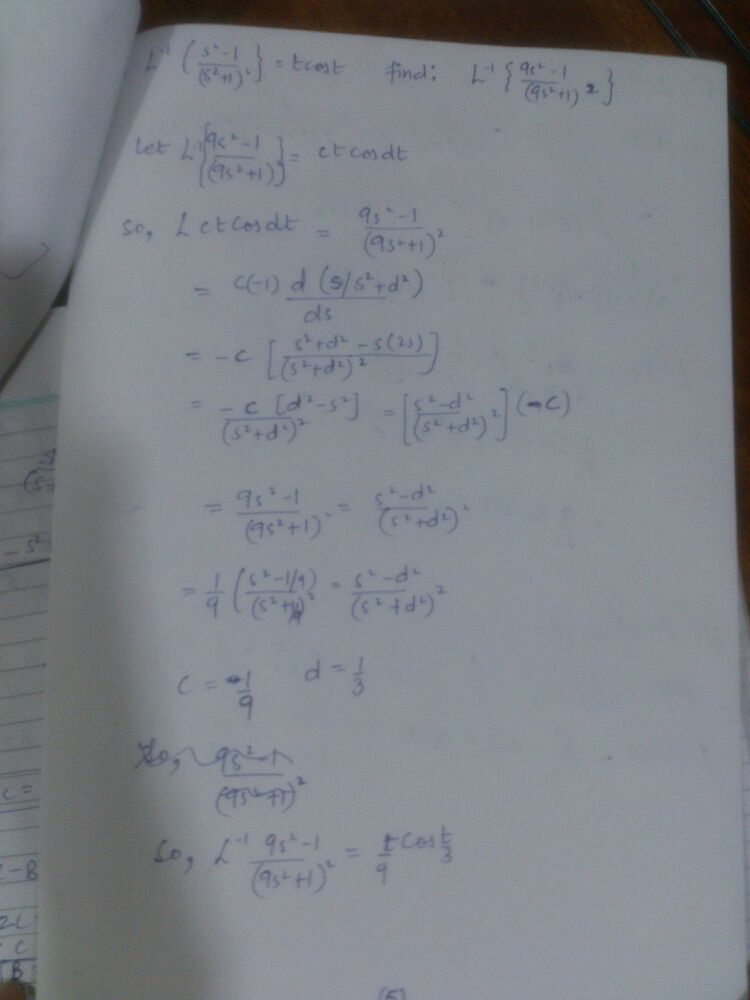 L⁻¹ { s²-1 / (s²+1)² } = t cost find: L⁻¹ { 9s²-1 / (9s²+1)² }
Let L⁻¹ { 9s²-1 / (9s²+1) } = ct cosdt
so, L ct cosdt = 9s²-1 / (9s²+1)²
= c(-1) d (s/s²+d²) / ds
= -c [ s²+d² -s(2s) / (s²+d²)² ]
= -c [d²-s²] / (s²+d²)² = [ s²-d² / (s²+d²)² ] (-c)
= 9s²-1 / (9s²+1)² = s²-d² / (s²+d²)²
= 1/9 ( s²-1/9 ) / (s²+1/9)² = s²-d² / (s²+d²)²
c = 1/9 d = 1/3
So, 9s²-1 / (9s²+1)²
So, L⁻¹ 9s²-1 / (9s²+1)² = t/9 cos t/3
- s²
c =
- B
2C
C
B